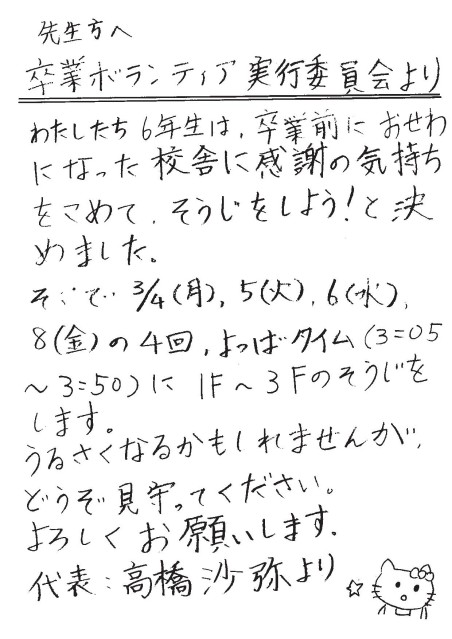 先生方へ
卒業ボランティア実行委員会より
わたしたち6年生は、卒業前におせわ
になった校舎に感謝の気持ち
をこめて、そうじをしよう!と決
めました。
そこで 3/4(月),5(火),6(水),
8(金)の4回,よつばタイム(3:05
~3:50)に1F~3Fのそうじを
します。
うるさくなるかもしれませんが、
どうぞ見守ってください。
よろしくお願いします.
代表:高橋沙弥より